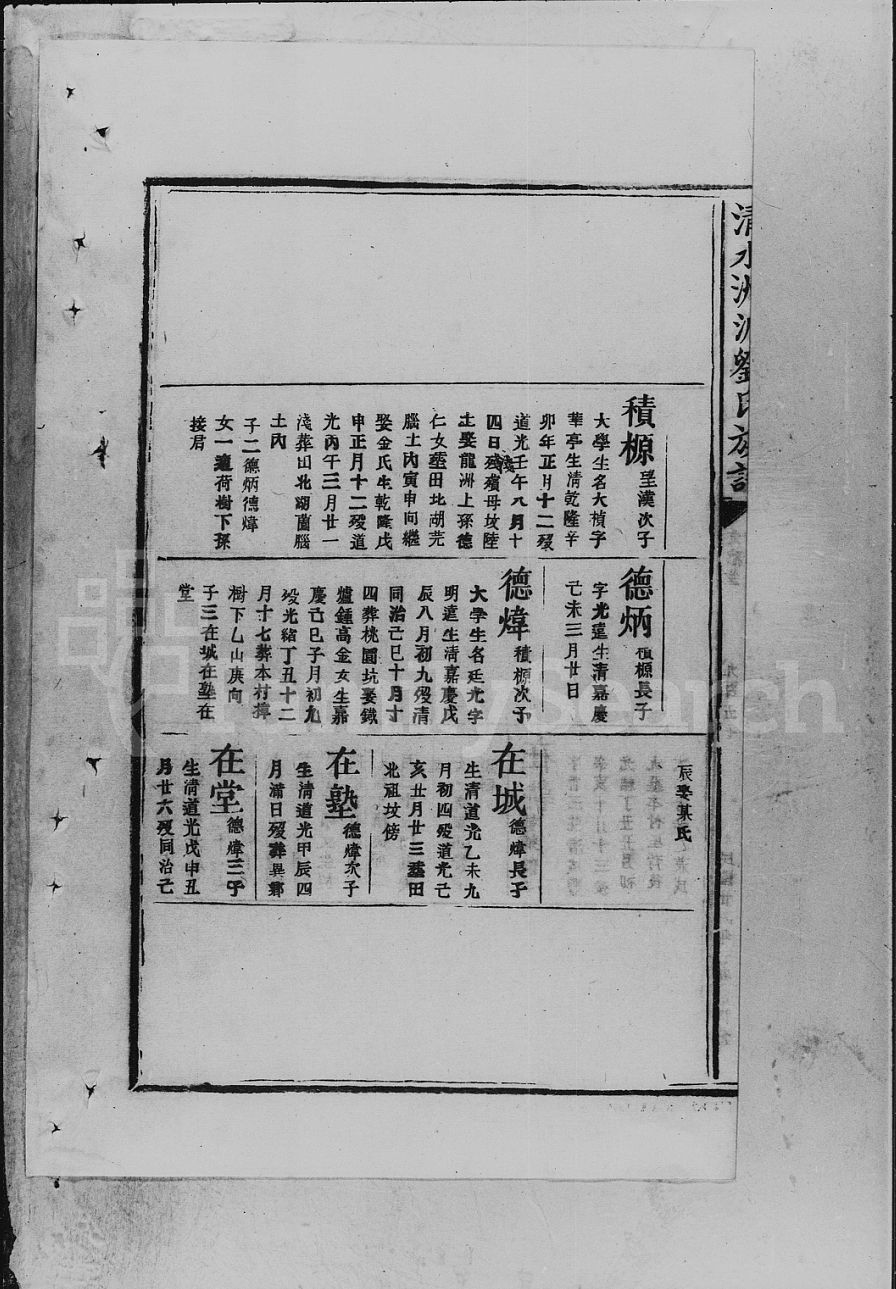 清水洲派劉氏族譜
積櫞 呈漢次子
大學生名大楨字
華亭生清乾隆辛
卯年正月十二歿
道光壬午八月十
四日歿淺殯母坟陸
上娶龍洲上孫德
仁女塟田北湖芫
腦土內寅申向繼
娶金氏生乾隆戊
申正月十二歿道
光丙午三月廿一
淺葬田北湖菌腦
土內
子二德炳德煒
女一適荷樹下孫
接君
德炳 積櫞長子
字光遠生清嘉慶
己未三月廿日
德煒 積櫞次子
大學生名廷光字
明遠生清嘉慶戊
辰八月初九歿清
同治己巳十月十
四葬桃園坑娶鐵
爐鍾高金女生嘉
慶己巳子月初九
歿光緒丁丑十二
月十七葬本村樟
樹下乙山庚向
子三在城在塾在
堂
辰娶某氏
在城 德煒長子
生清道光乙未九
月初四歿道光己
亥丑月廿三塟田
北祖坟傍
在塾 德煒次子
生清道光甲辰四
月滿日歿葬異鄉
在堂 德煒三子
生清道光戊申丑
月廿六歿同治己